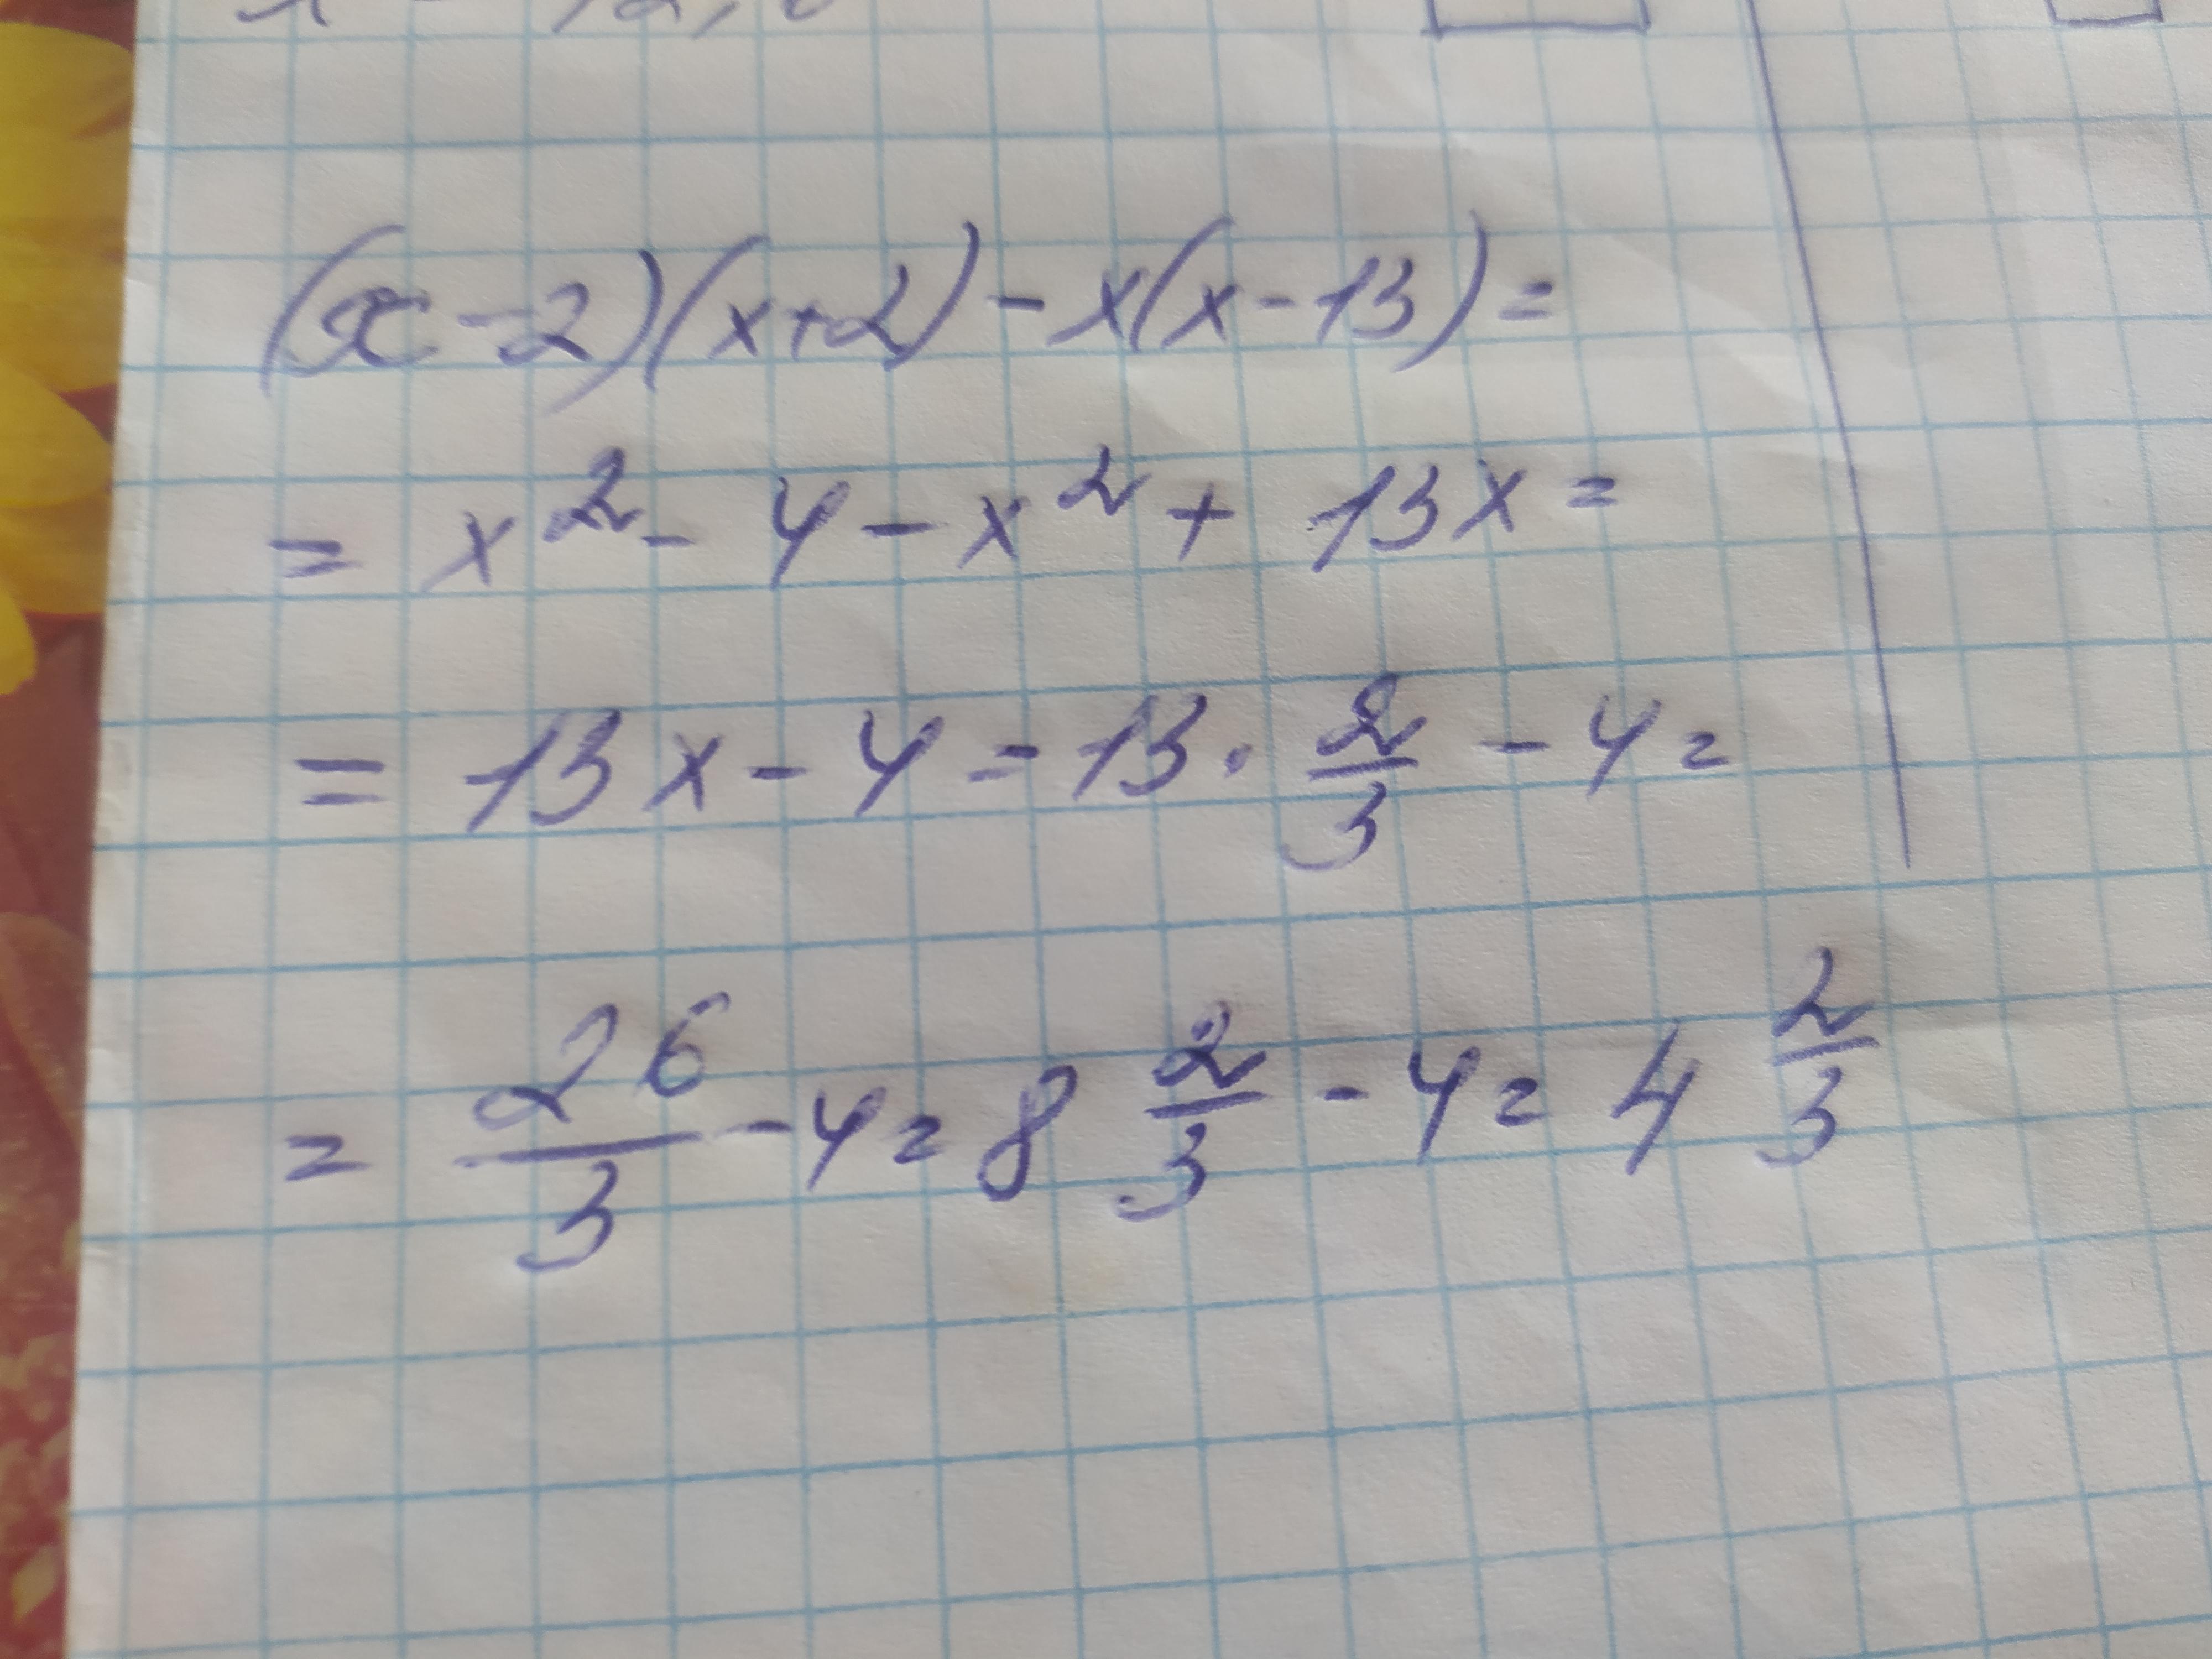 (x-2)(x+2)-x(x-13)=
= x²- 4 - x² + 13x =
= 13x - 4 = 13 · 2/3 - 4 =
= 26/3 - 4 = 8 2/3 - 4 = 4 2/3